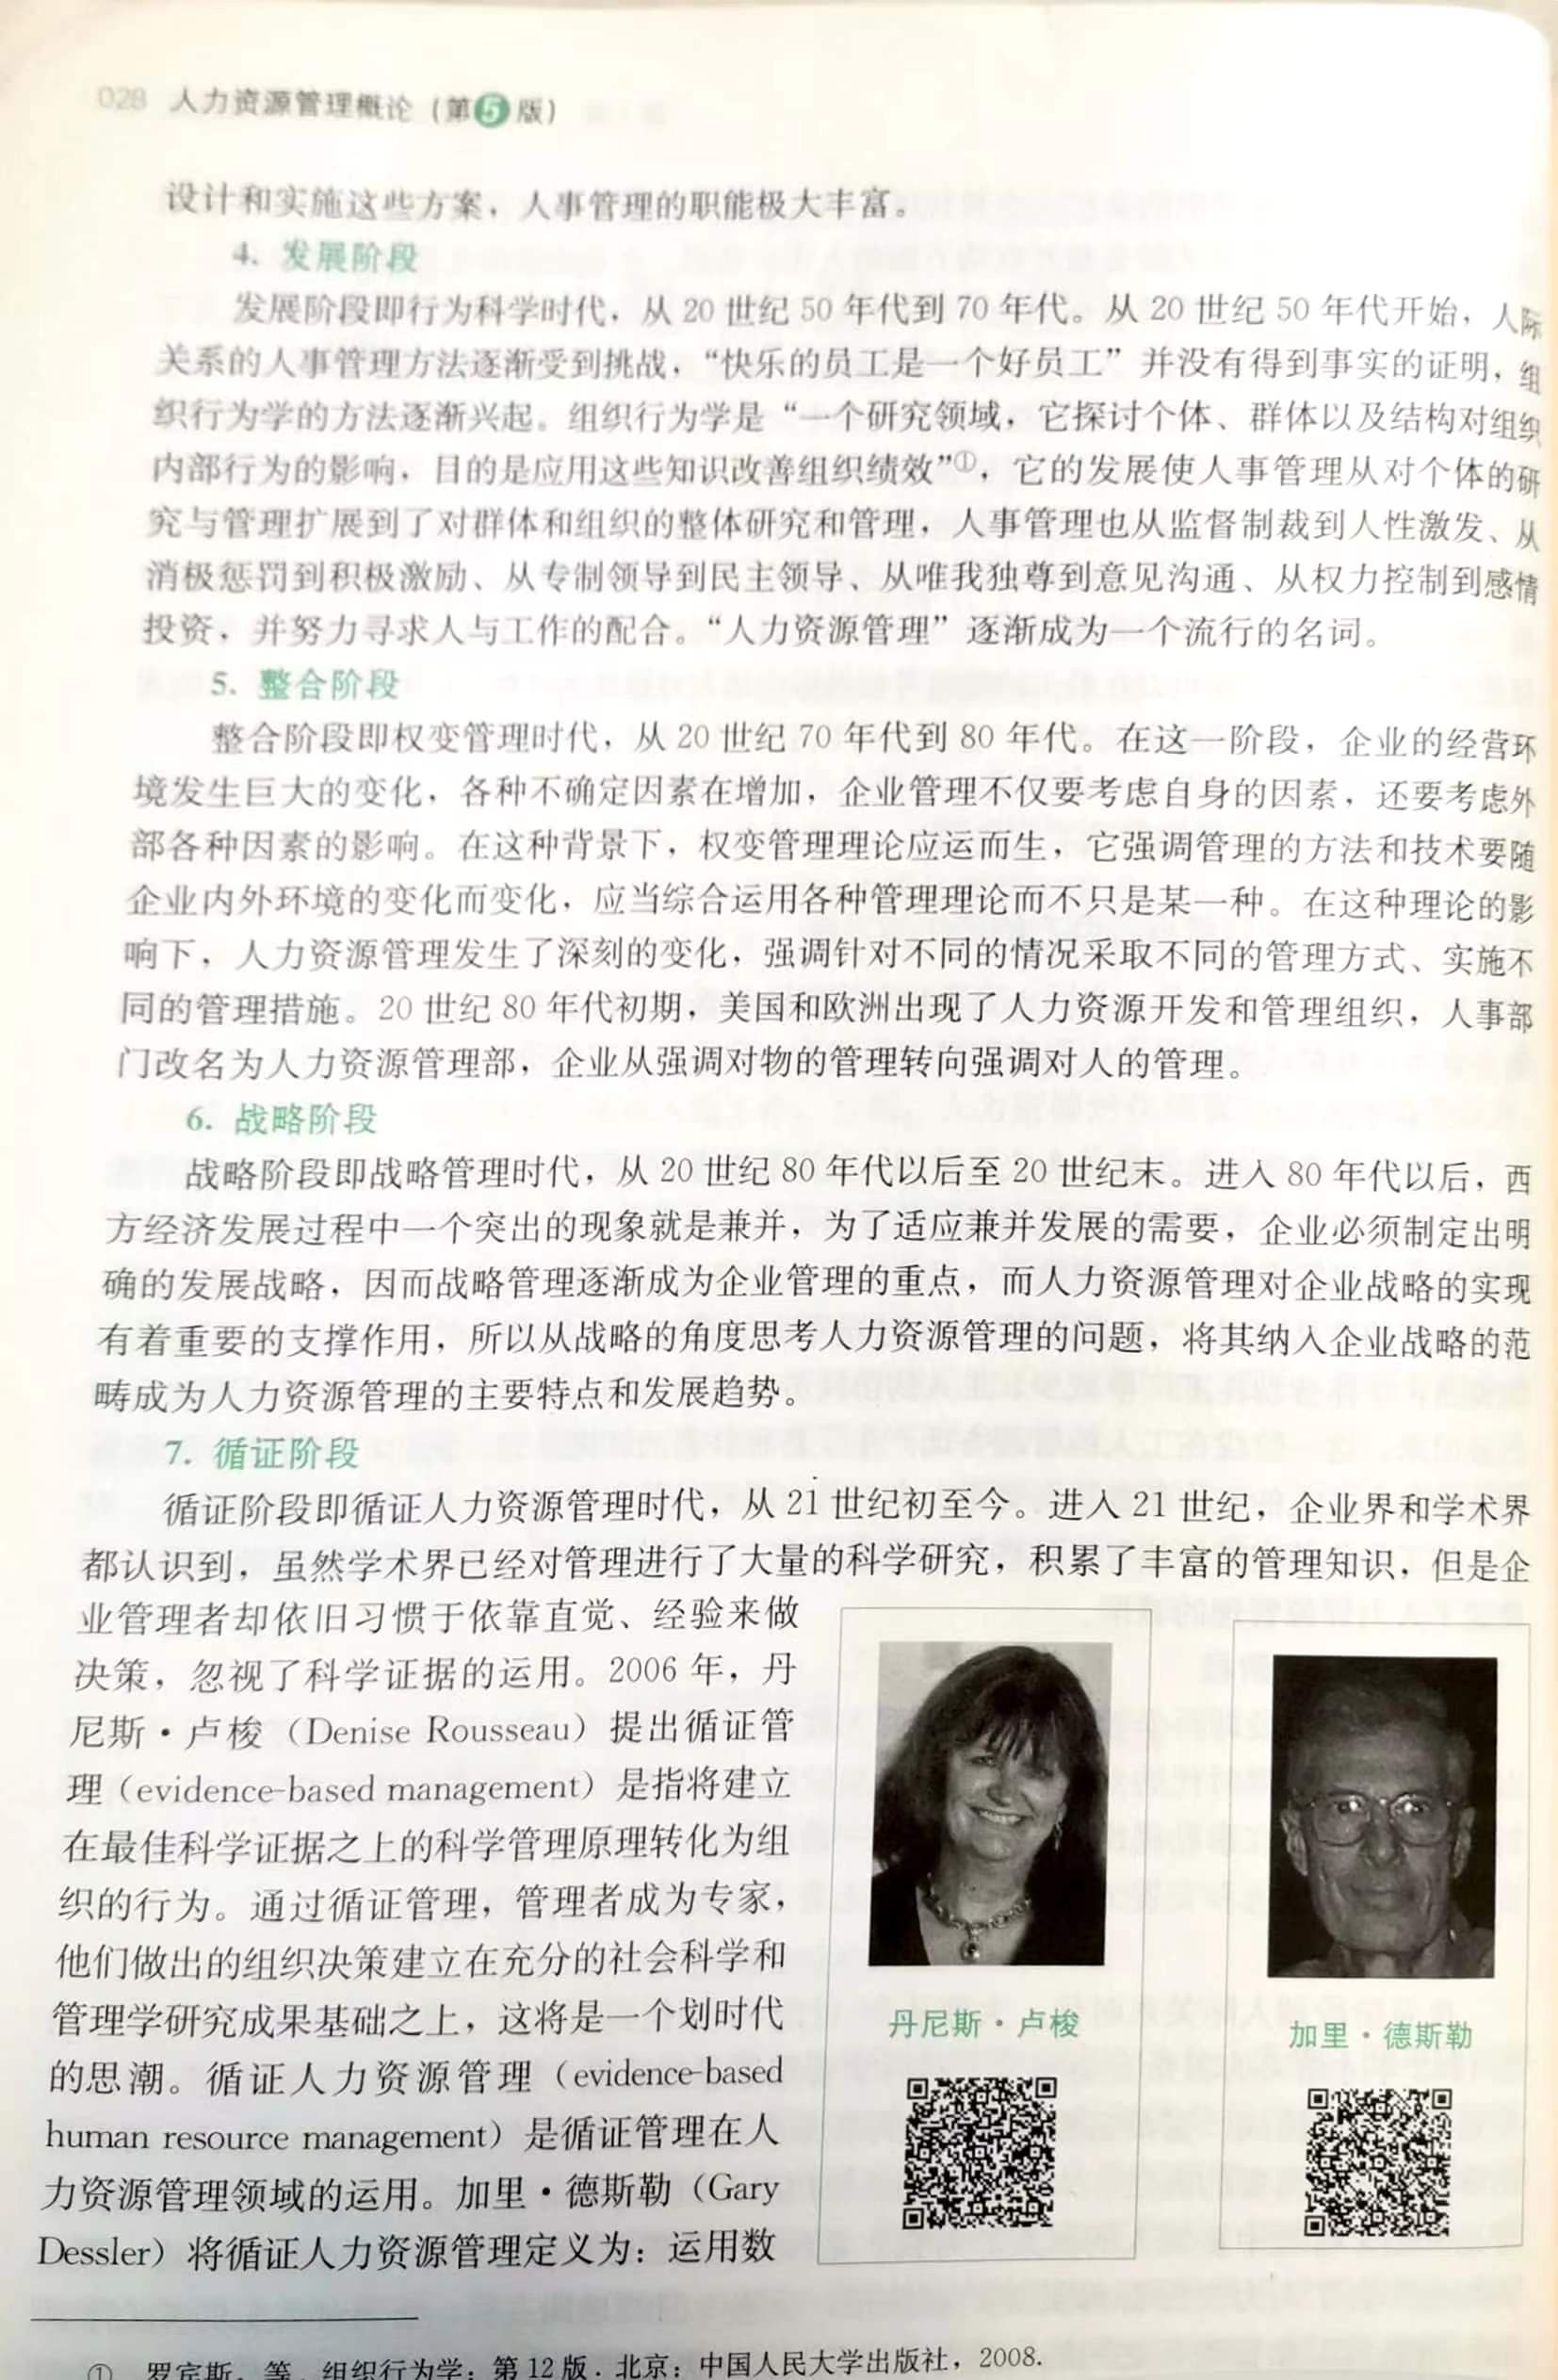 028 人力资源管理概论（第5版）
设计和实施这些方案，人事管理的职能极大丰富。
4. 发展阶段
发展阶段即行为科学时代，从 20 世纪 50 年代到 70 年代。从 20 世纪 50 年代开始，人际
关系的人事管理方法逐渐受到挑战，“快乐的员工是一个好员工”并没有得到事实的证明，组
织行为学的方法逐渐兴起。组织行为学是“一个研究领域，它探讨个体、群体以及结构对组织
内部行为的影响，目的是应用这些知识改善组织绩效”①，它的发展使人事管理从对个体的研
究与管理扩展到了对群体和组织的整体研究和管理，人事管理也从监督制裁到人性激发、从
消极惩罚到积极激励、从专制领导到民主领导、从唯我独尊到意见沟通、从权力控制到感情
投资，并努力寻求人与工作的配合。“人力资源管理”逐渐成为一个流行的名词。
5. 整合阶段
整合阶段即权变管理时代，从 20 世纪 70 年代到 80 年代。在这一阶段，企业的经营环
境发生巨大的变化，各种不确定因素在增加，企业管理不仅要考虑自身的因素，还要考虑外
部各种因素的影响。在这种背景下，权变管理理论应运而生，它强调管理的方法和技术要随
企业内外环境的变化而变化，应当综合运用各种管理理论而不只是某一种。在这种理论的影
响下，人力资源管理发生了深刻的变化，强调针对不同的情况采取不同的管理方式、实施不
同的管理措施。20 世纪 80 年代初期，美国和欧洲出现了人力资源开发和管理组织，人事部
门改名为人力资源管理部，企业从强调对物的管理转向强调对人的管理。
6. 战略阶段
战略阶段即战略管理时代，从 20 世纪 80 年代以后至 20 世纪末。进入 80 年代以后，西
方经济发展过程中一个突出的现象就是兼并，为了适应兼并发展的需要，企业必须制定出明
确的发展战略，因而战略管理逐渐成为企业管理的重点，而人力资源管理对企业战略的实现
有着重要的支撑作用，所以从战略的角度思考人力资源管理的问题，将其纳入企业战略的范
畴成为人力资源管理的主要特点和发展趋势。
7. 循证阶段
循证阶段即循证人力资源管理时代，从 21 世纪初至今。进入 21 世纪，企业界和学术界
都认识到，虽然学术界已经对管理进行了大量的科学研究，积累了丰富的管理知识，但是企
业管理者却依旧习惯于依靠直觉、经验来做
决策，忽视了科学证据的运用。2006 年，丹
尼斯·卢梭（Denise Rousseau）提出循证管
理（evidence-based management）是指将建立
在最佳科学证据之上的科学管理原理转化为组
织的行为。通过循证管理，管理者成为专家，
他们做出的组织决策建立在充分的社会科学和
管理学研究成果基础之上，这将是一个划时代
的思潮。循证人力资源管理（evidence-based
human resource management）是循证管理在人
力资源管理领域的运用。加里·德斯勒（Gary
Dessler）将循证人力资源管理定义为：运用数
丹尼斯·卢梭
加里·德斯勒
① 罗宾斯，等．组织行为学：第 12 版．北京：中国人民大学出版社，2008.